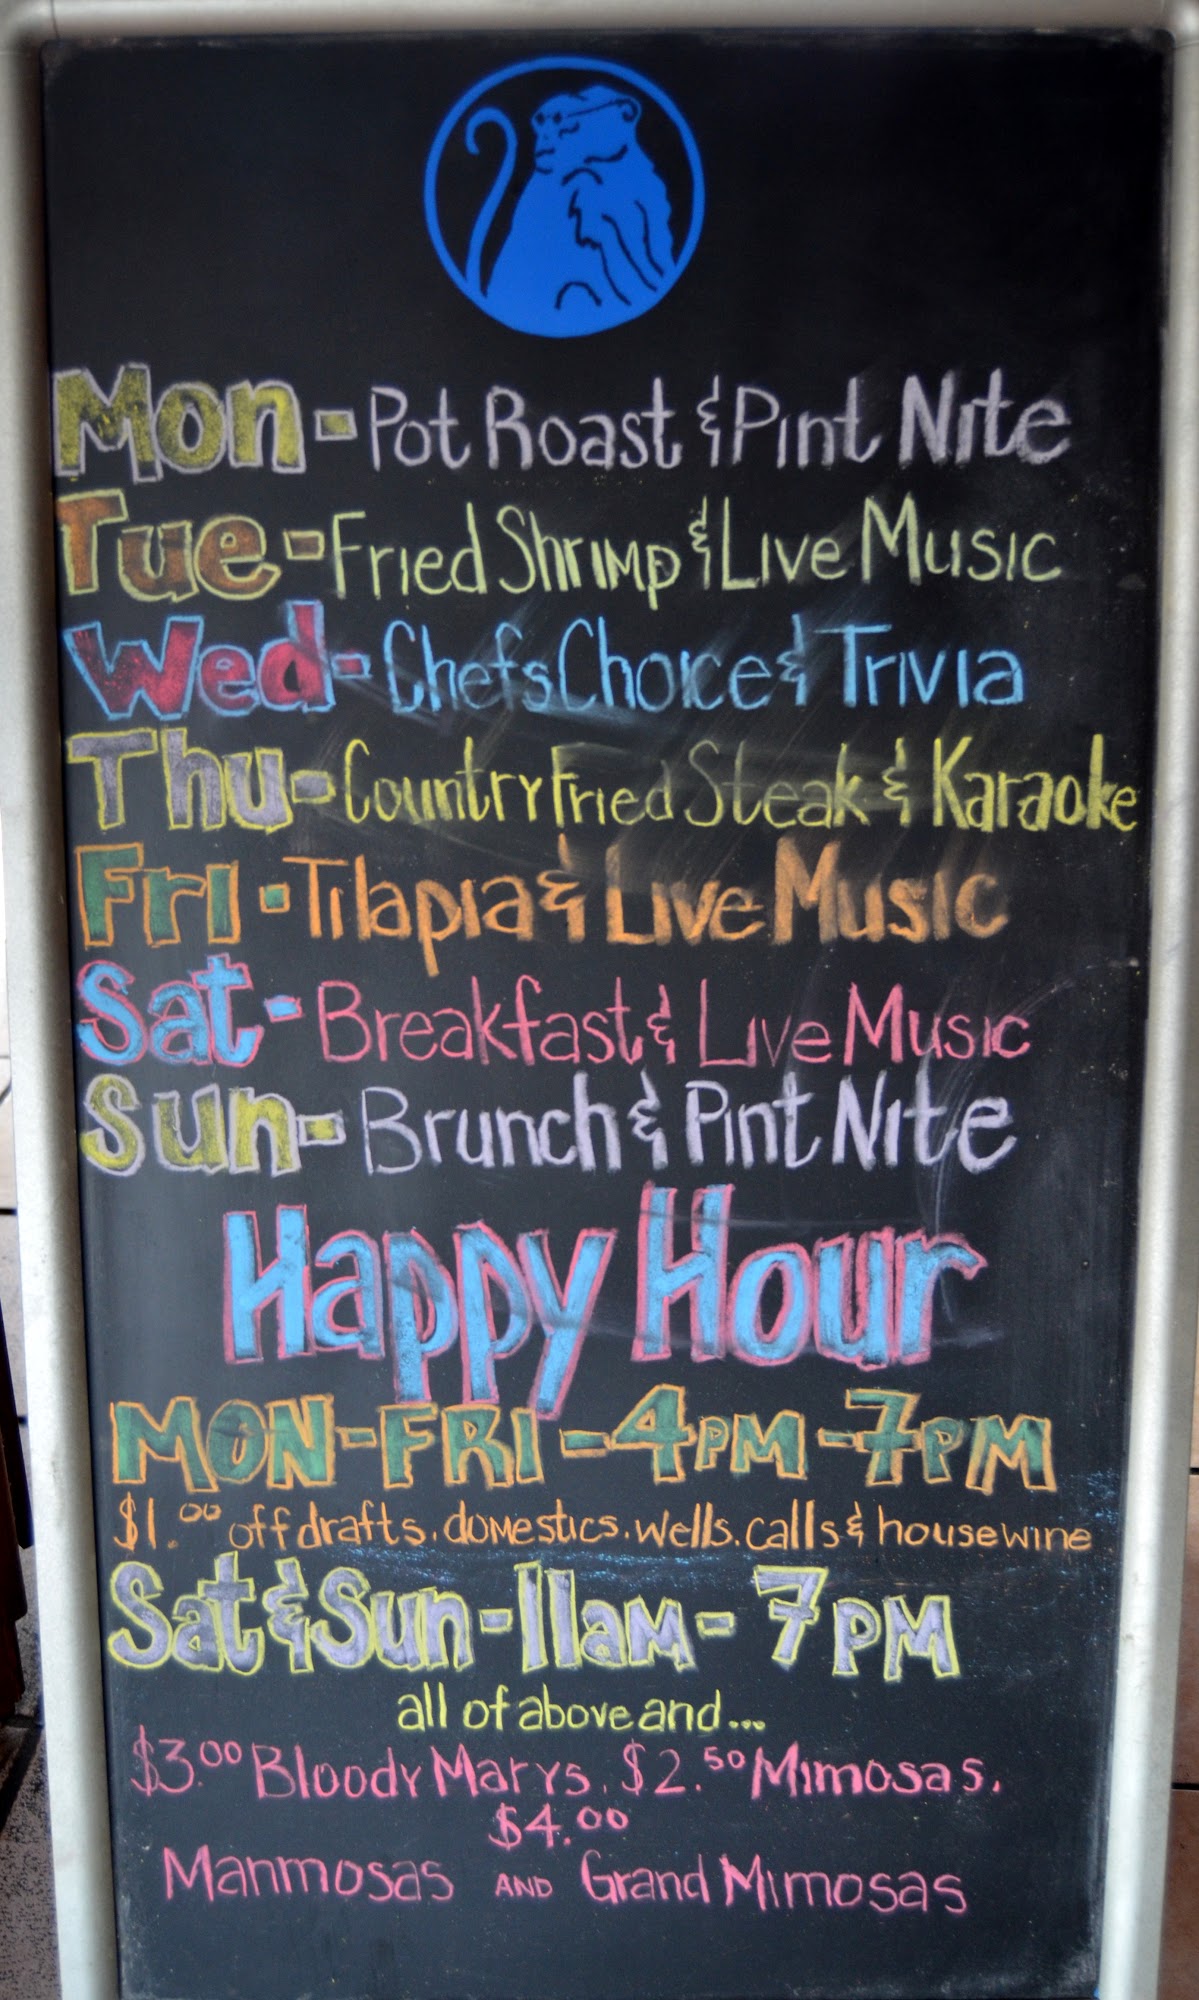 Mon - Pot Roast & Pint Nite
Tue - Fried Shrimp & Live Music
Wed - Chefs Choice & Trivia
Thu - Country Fried Steak & Karaoke
Fri - Tilapia & Live Music
Sat - Breakfast & Live Music
Sun - Brunch & Pint Nite
Happy Hour
MON - FRI - 4PM - 7PM
$1.00 off drafts. domestics. wells. calls & house wine
Sat & Sun - 11am - 7PM
all of above and...
$3.00 Bloody Marys. $2.50 Mimosas.
$4.00
Manmosas AND Grand Mimosas